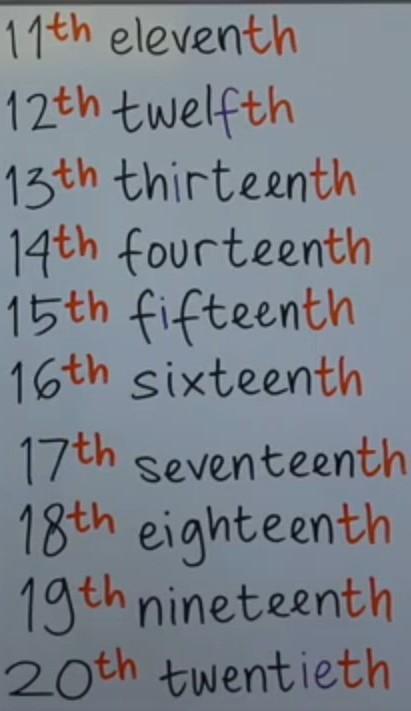 11th eleventh
12th twelfth
13th thirteenth
14th fourteenth
15th fifteenth
16th sixteenth
17th seventeenth
18th eighteenth
19th nineteenth
20th twentieth